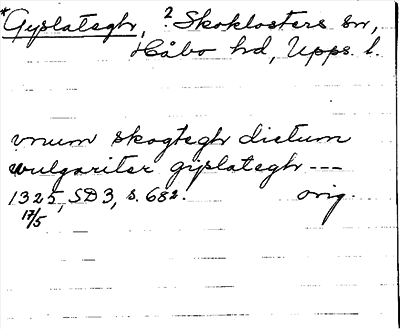 *Gyslategh, ? Skoklosters sn,
Håbo hd, Upps. l.
vnum skogtegh dictum
wulgariter gyslategh ---
1325, SD 3, s. 682. orig.
17/5